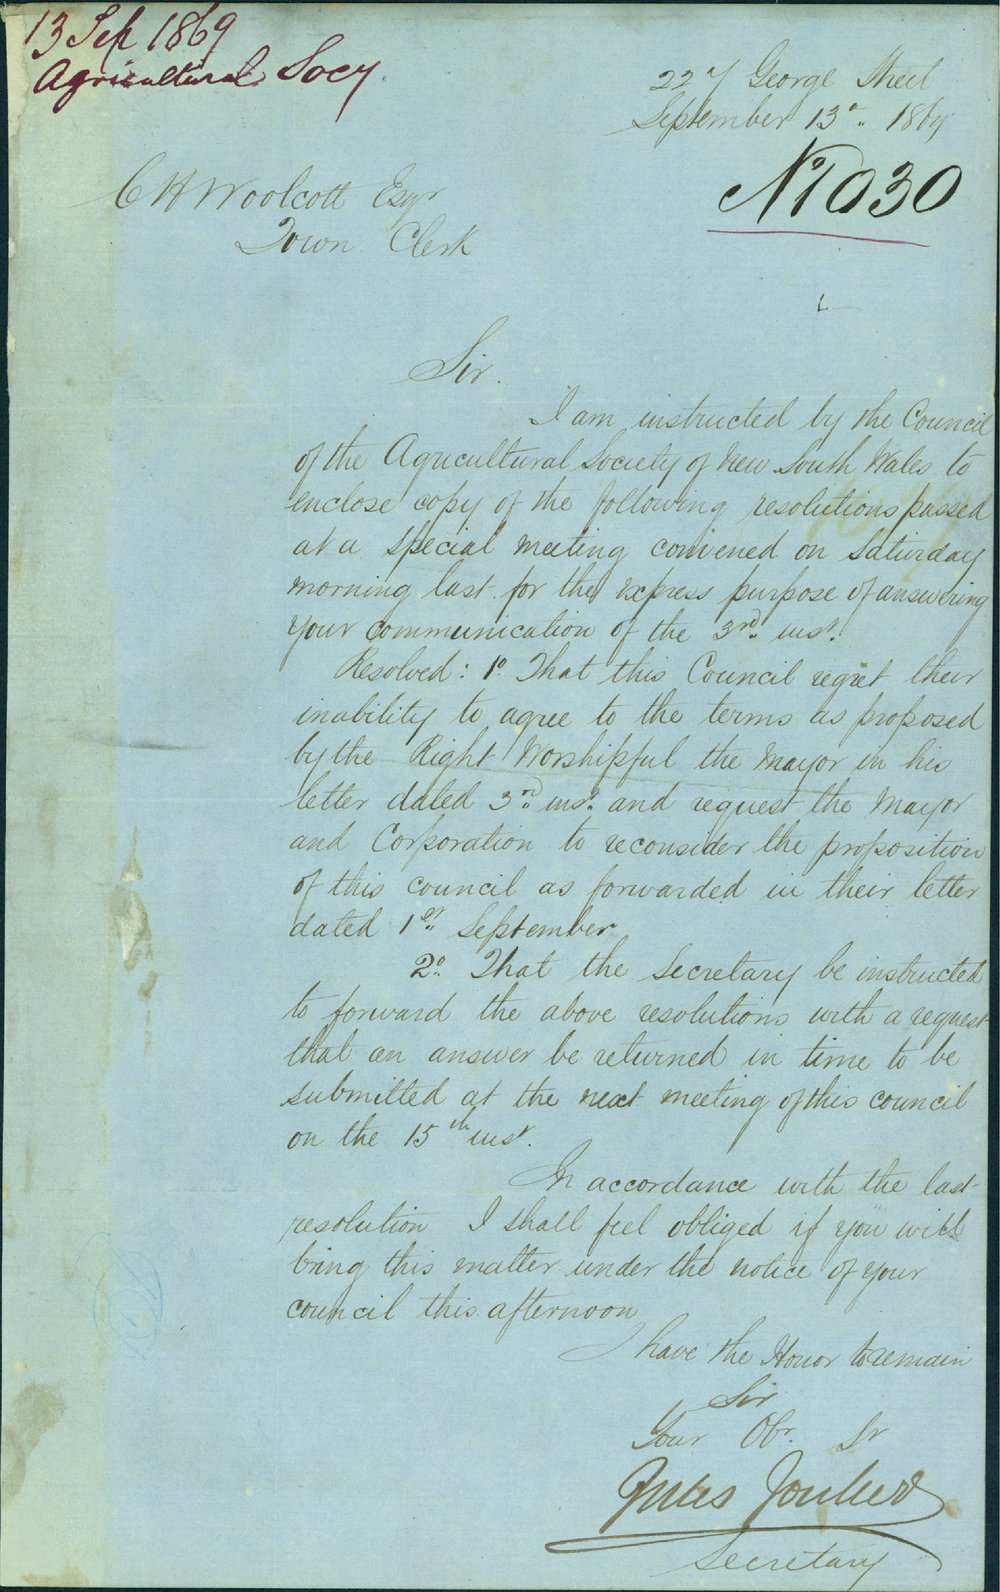 13 Sep 1869
Agricultural Socy.
227 George Street
September 13th. 1869
No 1030
C H Woolcott Esqr
Town Clerk
Sir.
I am instructed by the Council
of the Agricultural Society of New South Wales to
enclose copy of the following resolutions passed
at a special meeting convened on Saturday
morning last for the express purpose of answering
your communication of the 3rd. inst.
Resolved: 1o That this Council regret their
inability to agree to the terms as proposed
by the Right Worshipful the Mayor in his
letter dated 3rd. inst. and request the Mayor
and Corporation to reconsider the proposition
of this council as forwarded in their letter
dated 1st. September
2o. That the Secretary be instructed
to forward the above resolutions with a request
that an answer be returned in time to be
submitted at the next meeting of this council
on the 15th inst.
In accordance with the last
resolution I shall feel obliged if you will
bring this matter under the notice of your
council this afternoon
I have the Honor to remain
Sir
Your Ob. Sr
Jules Joubert
Secretary